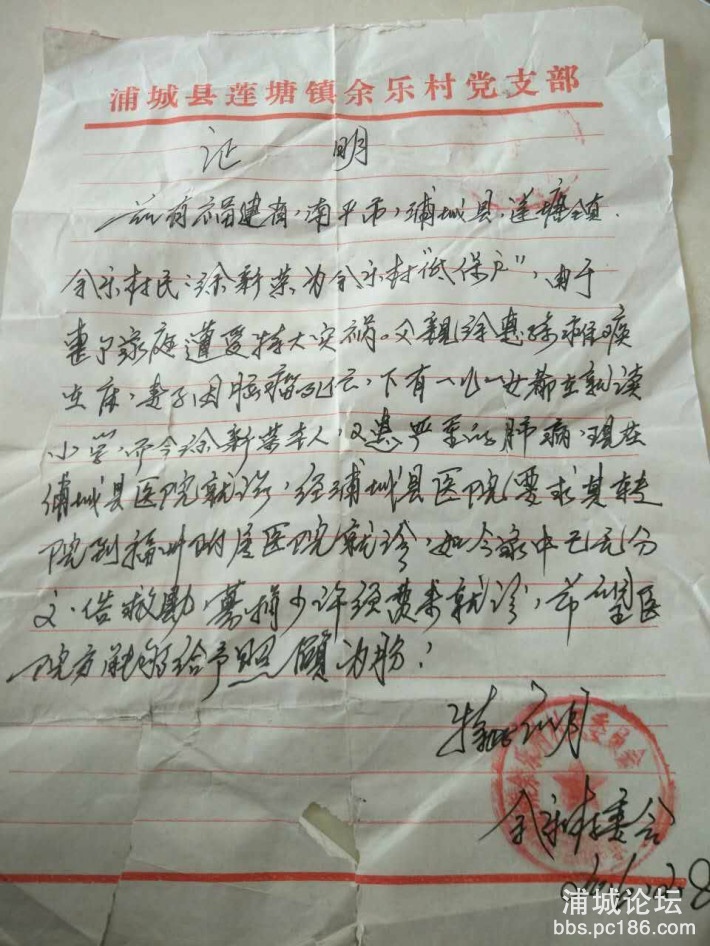 浦城县莲塘镇余乐村党支部
证 明
兹有福建省,南平市,浦城县,莲塘镇
余乐村民:徐新荣为余乐村"低保户",由于
家庭遭受特大灾祸。父亲徐惠 瘫痪
在床,妻子因脑瘤死亡,下有一儿一女都在就读
小学,而今徐新荣本人,又患严重的肺病,现在
浦城县医院就诊,经浦城县医院要求其转
院到福州附属医院就诊,如今家中已无分
文.借 募捐少许经费来就诊,希望医
院方能够给予照顾为盼!
特此证明
委员会
余乐村委会
浦城论坛
bbs.pc186.com